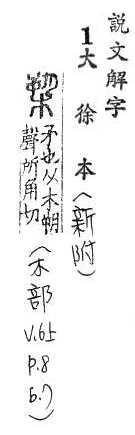 説文解字
1大徐本(新附)
槊
矛也从木朔
聲所角切
(木部 V.6上 p.8 b.7)